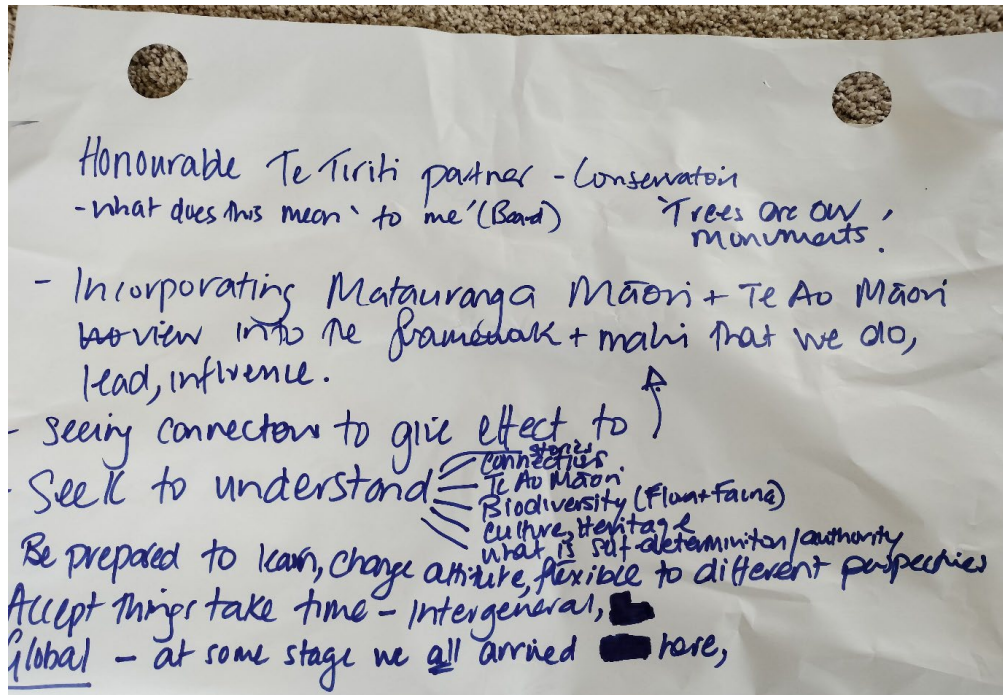 Honourable Te Tiriti partner - Conservation
- what does this mean 'to me' (Board)
'Trees are our
monuments.'
- Incorporating Matauranga Māori + Te Ao Māori
view into the framework + mahi that we do,
lead, influence.
- Seeing connections to give effect to
- Seek to understand
stories
connecties
Te Ao Māori
Biodiversity (Flora + Fauna)
Culture, Heritage
what is self-determinition/authority
Be prepared to learn, change attitute, flexible to different perspectives
Accept things take time - Intergeneral,
Global - at some stage we all arrived here,